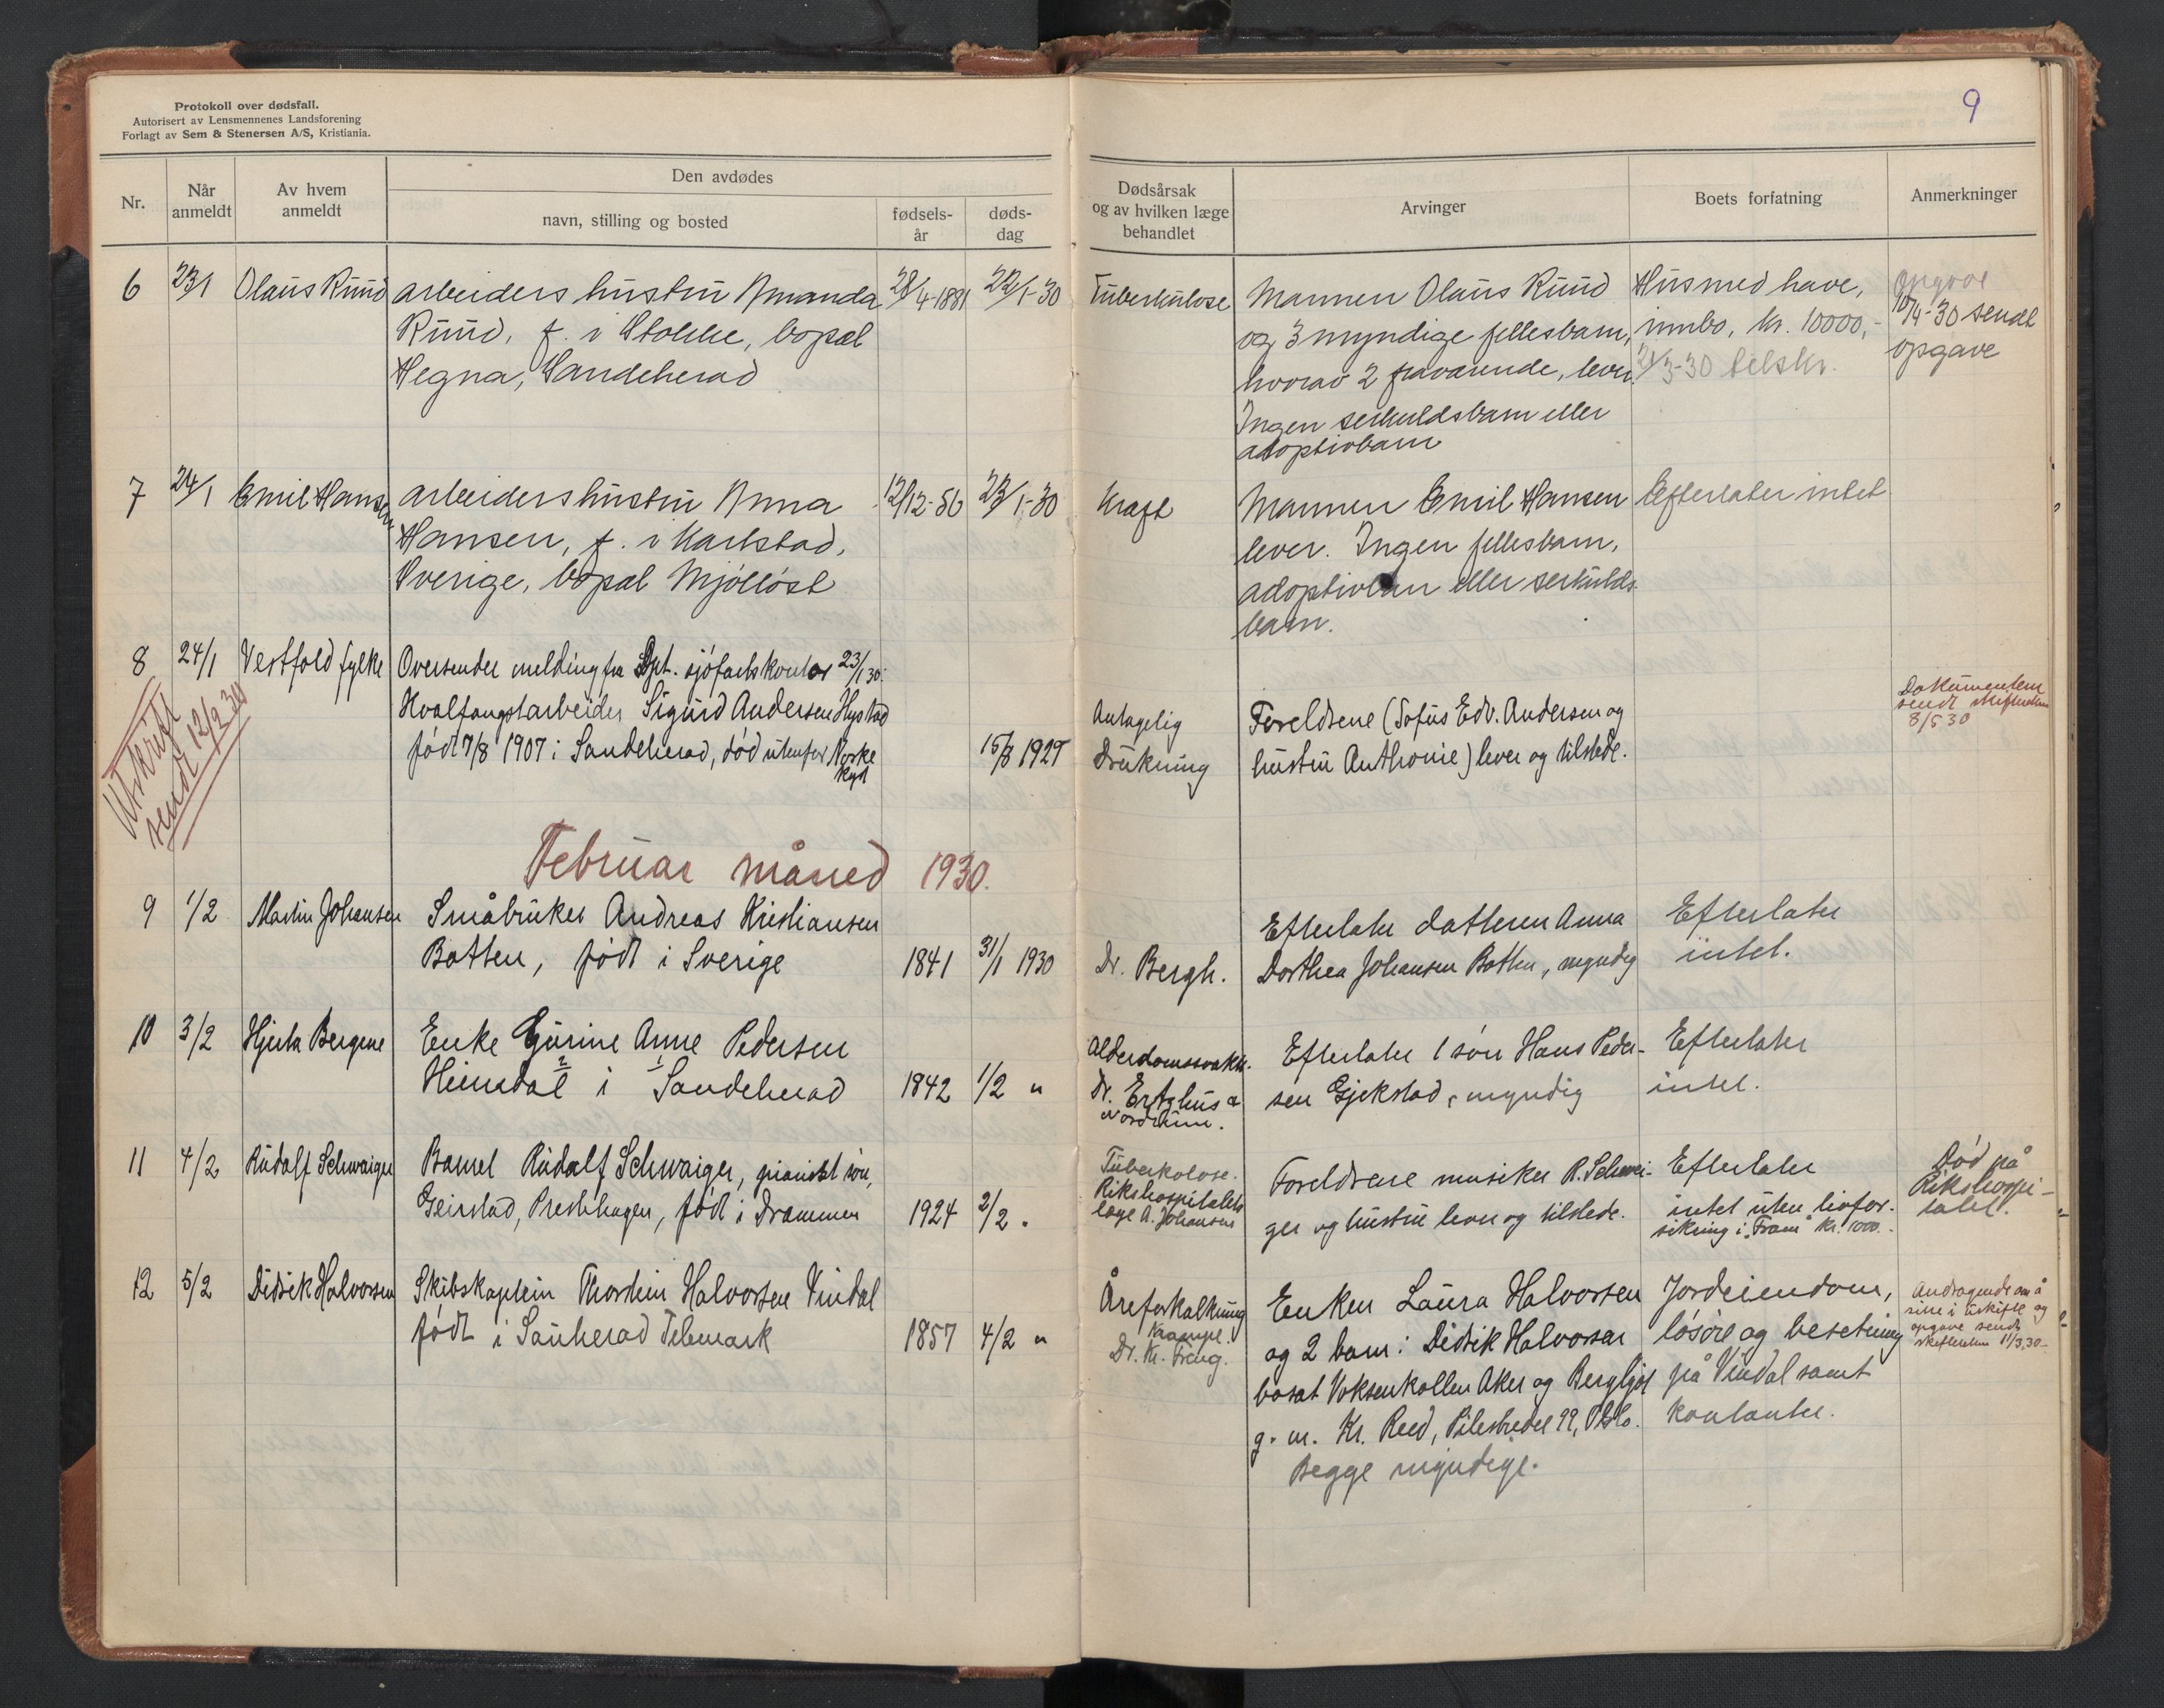 Protokoll over dødsfall.
Autorisert av Lensmennenes Landsforening
Forlagt av Sem & Stenersen A/S, Kristiania.
9
Nr.
Når anmeldt
Av hvem anmeldt
Den avdødes
navn, stilling og bosted
fødsels-år
døds-dag
Dødsårsak og av hvilken læge behandlet
Arvinger
Boets forfatning
Anmerkninger
6 23/1 Olaus Ruud arbeiders hustru Amanda 28/4-1881 22/1-30 Tuberkulose Mannen Olaus Ruud Hus med have, Opgave
Ruud, f. i Stokke, bopæl og 3 myndige fellesbarn, innbo, kr. 10000,- 10/4-30 sendt
Hegna, Sandeherad hvorav 2 fraværende, lever. 21/3-30 tilskr. opgave
Ingen serkuldsbarn eller
adoptivbarn
7 24/1 Emil Hansen arbeiders hustru Anna 12/12-56 23/1-30 Kræft Mannen Emil Hansen Efterlater intet
Hansen, f. i Karlstad, lever. Ingen fellesbarn,
Sverige, bopæl Mjølløst adoptivbarn eller serkulds-
barn.
8 24/1 Vestfold fylke Oversender melding fra Dpt. sjøfartskontor 23/1 30:
Hvalfangstarbeider Sigurd Andersen Hystad Antagelig Foreldrene (Sofus Edv. Andersen og Dokumentene
født 7/8 1907 i Sandeherad, død utenfor Norske kyst 15/8 1929 Drukning hustru Anthonie) lever og tilstede. sendt skifteretten 8/5 30
Utskrift
sendt 12/3 30
Februar måned 1930.
9 1/2 Martin Johansen Småbruker Andreas Kristiansen Efterlater datteren Anna Efterlater
Botten, født i Sverige 1841 31/1 1930 Dr. Bergh. Dorthea Johansen Botten, myndig intet.
10 3/2 Hjerta Bergene Enke Gurine Anne Pedersen Alderdomssvakh. Efterlater 1 søn Hans Peder- Efterlater
Heimdal i Sandeherad 1842 1/2 " Dr. sen Gjekstad, myndig intet.
11 4/2 Rudolf Schwaiger Barnet Rudolf Schwaiger, pianist søn, Tuberkolose. Foreldrene musiker R. Schwai- Efterlater Død på
Geirstad, Presthagen, født i Drammen 1924 2/2 " Rikshospitalets ger og hustru lever og tilstede. intet uten livfor- Rikshospi-
læge A. Johansen sikring i "Fram" kr. 1000.- talet.
12 5/2 Didrik Halvorsen Skibskaptein Thorstein Halvorsen Vindal Åreforkalkning Enken Laura Halvorsen Jordeiendom, Andragende om å
født i Sauherad Telemark 1857 4/2 " Krampe. og 2 barn: Didrik Halvorsen løsøre og besetning sitte i uskifte og
Dr. Kr. Freng. bosat Voksenkollen Aker og Bergljot på Vindal samt opgave sendt
g. m. Kr. Reed, Pilestredet 99, Oslo. kontanter. skifteretten 11/3 30.
Begge myndige.